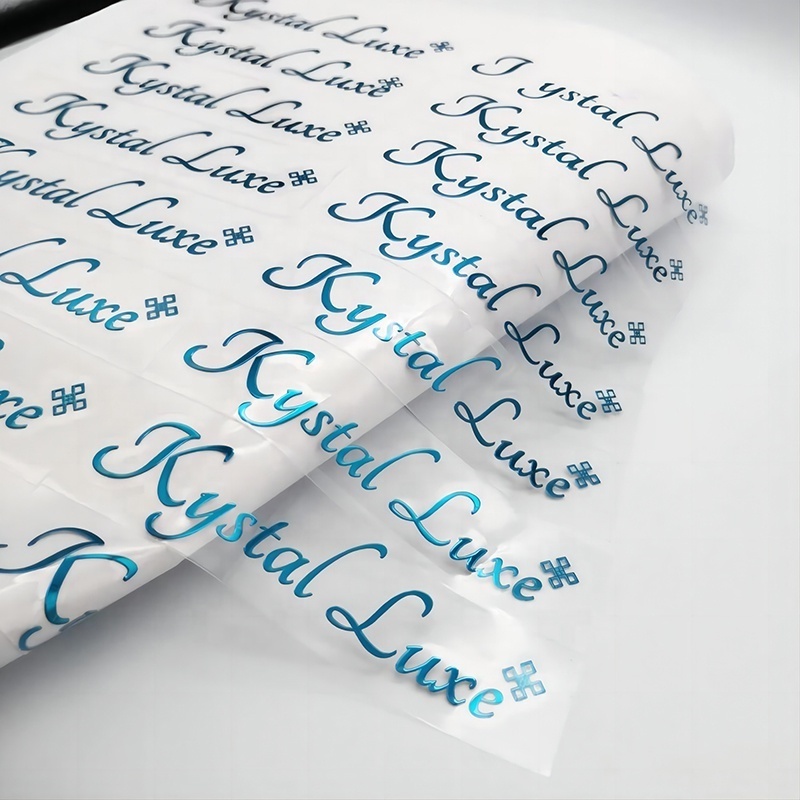 Kystal Luxe
Kystal Luxe
Kystal Luxe
Kystal Luxe
Kystal Luxe
Luxe
xe
K
J ystal Luxe
Kystal Luxe
Kystal Luxe
Kystal Luxe
Kystal Luxe
Kystal Luxe
Kystal Luxe